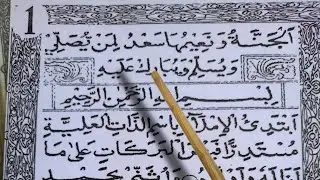 1
الجنة ونعيمها سعد لمن يصلي
ويسلم ويبارك عليه
بسم الله الرحمن الرحيم
ابتدئ الإملاء باسم الذات العلية
مستدرا فيض البركات على ما